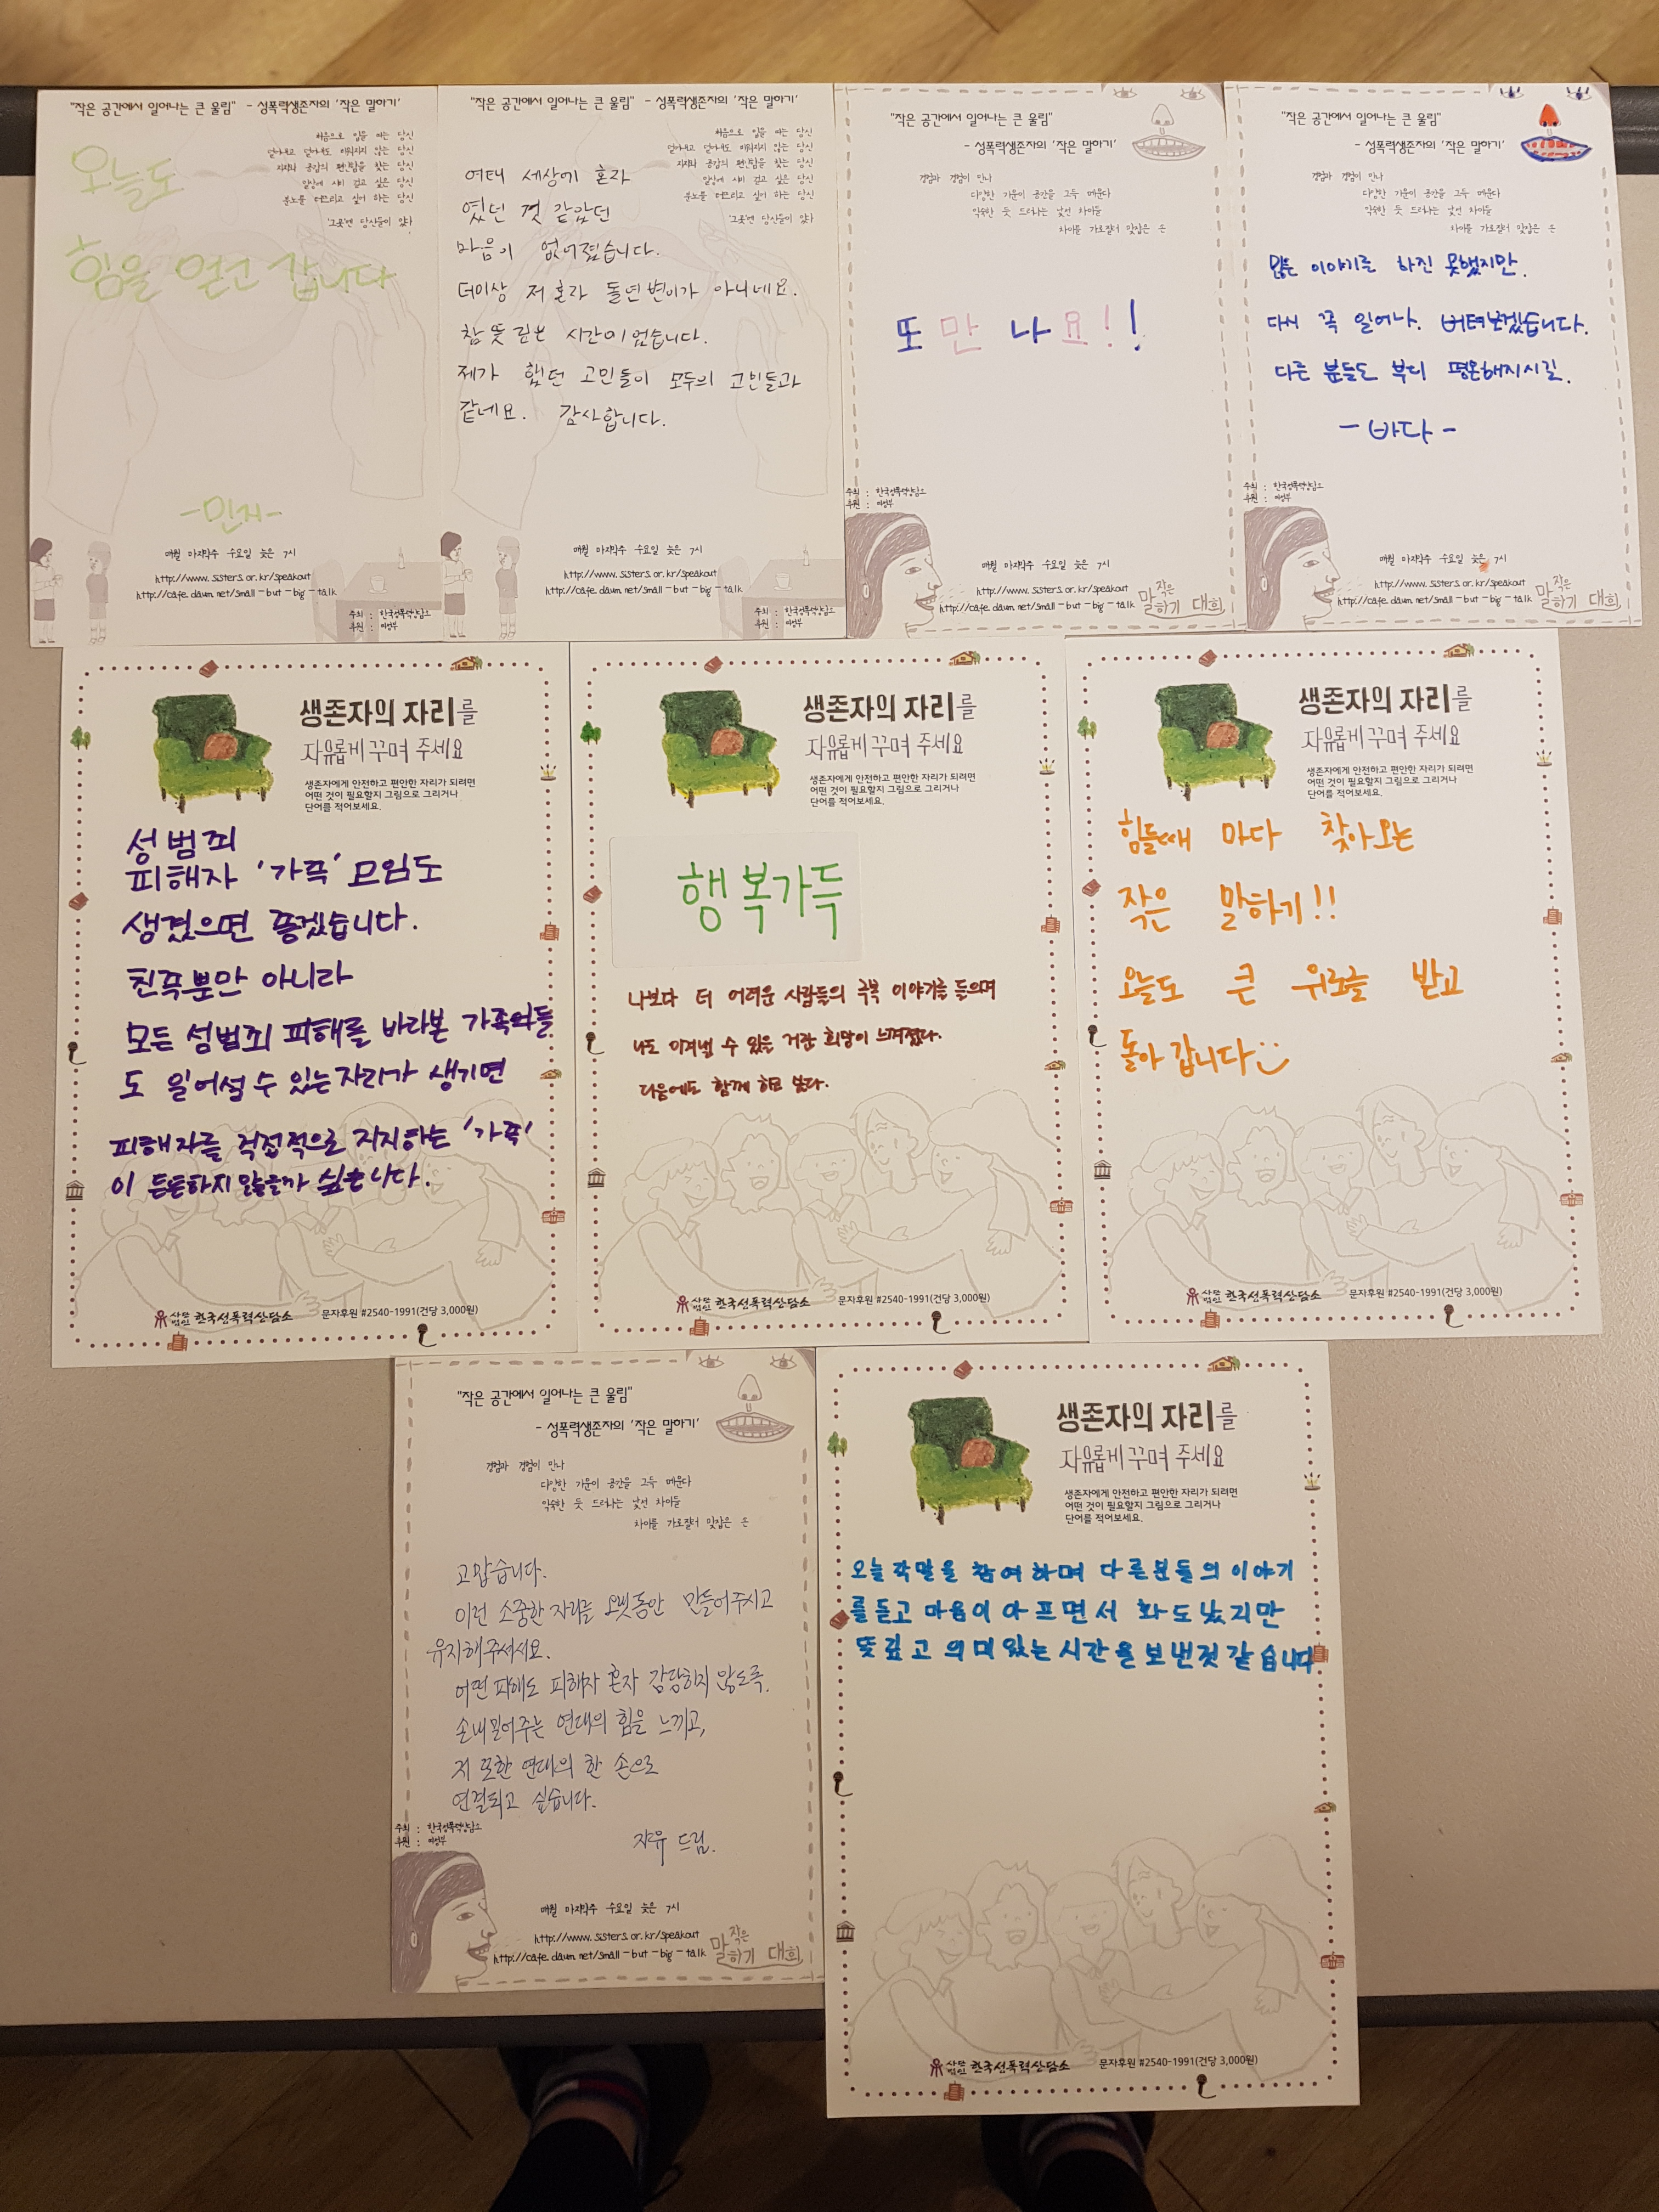 "작은 공간에서 일어나는 큰 울림" - 성폭력생존자의 '작은 말하기'
처음으로 입을 떼는 당신
지지와 공감의 편안함을 찾는 당신
말싱에 시비 걸고 싶은 당신
분노를 터뜨리고 싶어 하는 당신
'그곳'엔 당신들이 있다
오늘도
힘을 얻고 갑니다
-민지-
매월 마지막주 수요일 늦은 7시
http://www.sisters.or.kr/speakout
http://cafe.daum.net/small-but-big-talk
주최 : 한국성폭력상담소
후원 : 여성부
"작은 공간에서 일어나는 큰 울림" - 성폭력생존자의 '작은 말하기'
처음으로 입을 떼는 당신
지지와 공감의 편안함을 찾는 당신
분노를 터뜨리고 싶어 하는 당신
'그곳'엔 당신들이 있다
여태 세상에 혼자
였던 것 같았던
마음이 없어졌습니다.
더이상 저 혼자 돌연변이가 아니네요.
참 뜻 깊은 시간이었습니다.
제가 했던 고민들이 모두의 고민들과
같네요. 감사합니다.
매월 마지막주 수요일 늦은 7시
http://www.sisters.or.kr/speakout
http://cafe.daum.net/small-but-big-talk
주최 : 한국성폭력상담소
후원 : 여성부
"작은 공간에서 일어나는 큰 울림"
- 성폭력생존자의 '작은 말하기'
경험과 경험이 만나
다양한 기운이 공간을 그득 메운다
익숙한 듯 드러나는 낯선 차이들
차이를 가로질러 맞잡은 손
또 만 나 요!!
주최 : 한국성폭력상담소
후원 : 여성부
매월 마지막주 수요일 늦은 7시
http://www.sisters.or.kr/speakout
http://cafe.daum.net/small-but-big-talk
작은
말하기 대회
"작은 공간에서 일어나는 큰 울림"
- 성폭력생존자의 '작은 말하기'
경험과 경험이 만나
다양한 기운이 공간을 그득 메운다
익숙한 듯 드러나는 낯선 차이들
차이를 가로질러 맞잡은 손
많은 이야기를 하진 못했지만.
다시 꼭 일어나. 버텨보겠습니다.
다른 분들도 부디 평온해지시길.
-바다-
주최 : 한국성폭력상담소
후원 : 여성부
매월 마지막주 수요일 늦은 7시
http://www.sisters.or.kr/speakout
http://cafe.daum.net/small-but-big-talk
작은
말하기 대회
생존자의 자리를
자유롭게 꾸며 주세요
생존자에게 안전하고 편안한 자리가 되려면
어떤 것이 필요할지 그림으로 그리거나
단어를 적어보세요.
성범죄
피해자 '가족' 모임도
생겼으면 좋겠습니다.
친족뿐만 아니라
모든 성범죄 피해를 바라본 가족의들
도 일어설 수 있는 자리가 생기면
피해자를 직접적으로 지지하는 '가족'
이 든든하지 않을까 싶습니다.
사단법인 한국성폭력상담소 문자후원 #2540-1991(건당 3,000원)
생존자의 자리를
자유롭게 꾸며 주세요
생존자에게 안전하고 편안한 자리가 되려면
어떤 것이 필요할지 그림으로 그리거나
단어를 적어보세요.
행복가득
나보다 더 어려운 사람들의 극복 이야기를 들으며
나도 이겨낼 수 있을 거란 희망이 느껴졌다.
다음에도 함께 하고 싶다.
사단법인 한국성폭력상담소 문자후원 #2540-1991(건당 3,000원)
생존자의 자리를
자유롭게 꾸며 주세요
생존자에게 안전하고 편안한 자리가 되려면
어떤 것이 필요할지 그림으로 그리거나
단어를 적어보세요.
힘들때 마다 찾아오는
작은 말하기!!
오늘도 큰 위로를 받고
돌아 갑니다
사단법인 한국성폭력상담소 문자후원 #2540-1991(건당 3,000원)
"작은 공간에서 일어나는 큰 울림"
- 성폭력생존자의 '작은 말하기'
경험과 경험이 만나
다양한 기운이 공간을 그득 메운다
익숙한 듯 드러나는 낯선 차이들
차이를 가로질러 맞잡은 손
고맙습니다.
이런 소중한 자리를 오랫동안 만들어주시고
유지해주셔서요.
어떤 피해도 피해자 혼자 감당하지 않도록.
손내밀어주는 연대의 힘을 느끼고,
저 또한 연대의 한 손으로
연결되고 싶습니다.
자유 드림.
주최 : 한국성폭력상담소
후원 : 여성부
매월 마지막주 수요일 늦은 7시
http://www.sisters.or.kr/speakout
http://cafe.daum.net/small-but-big-talk
작은
말하기 대회
생존자의 자리를
자유롭게 꾸며 주세요
생존자에게 안전하고 편안한 자리가 되려면
어떤 것이 필요할지 그림으로 그리거나
단어를 적어보세요.
오늘 작말을 참여하며 다른분들의 이야기
를 듣고 마음이 아프면서 화도났지만
뜻깊고 의미있는 시간을 보낸것 같습니다
사단법인 한국성폭력상담소 문자후원 #2540-1991(건당 3,000원)